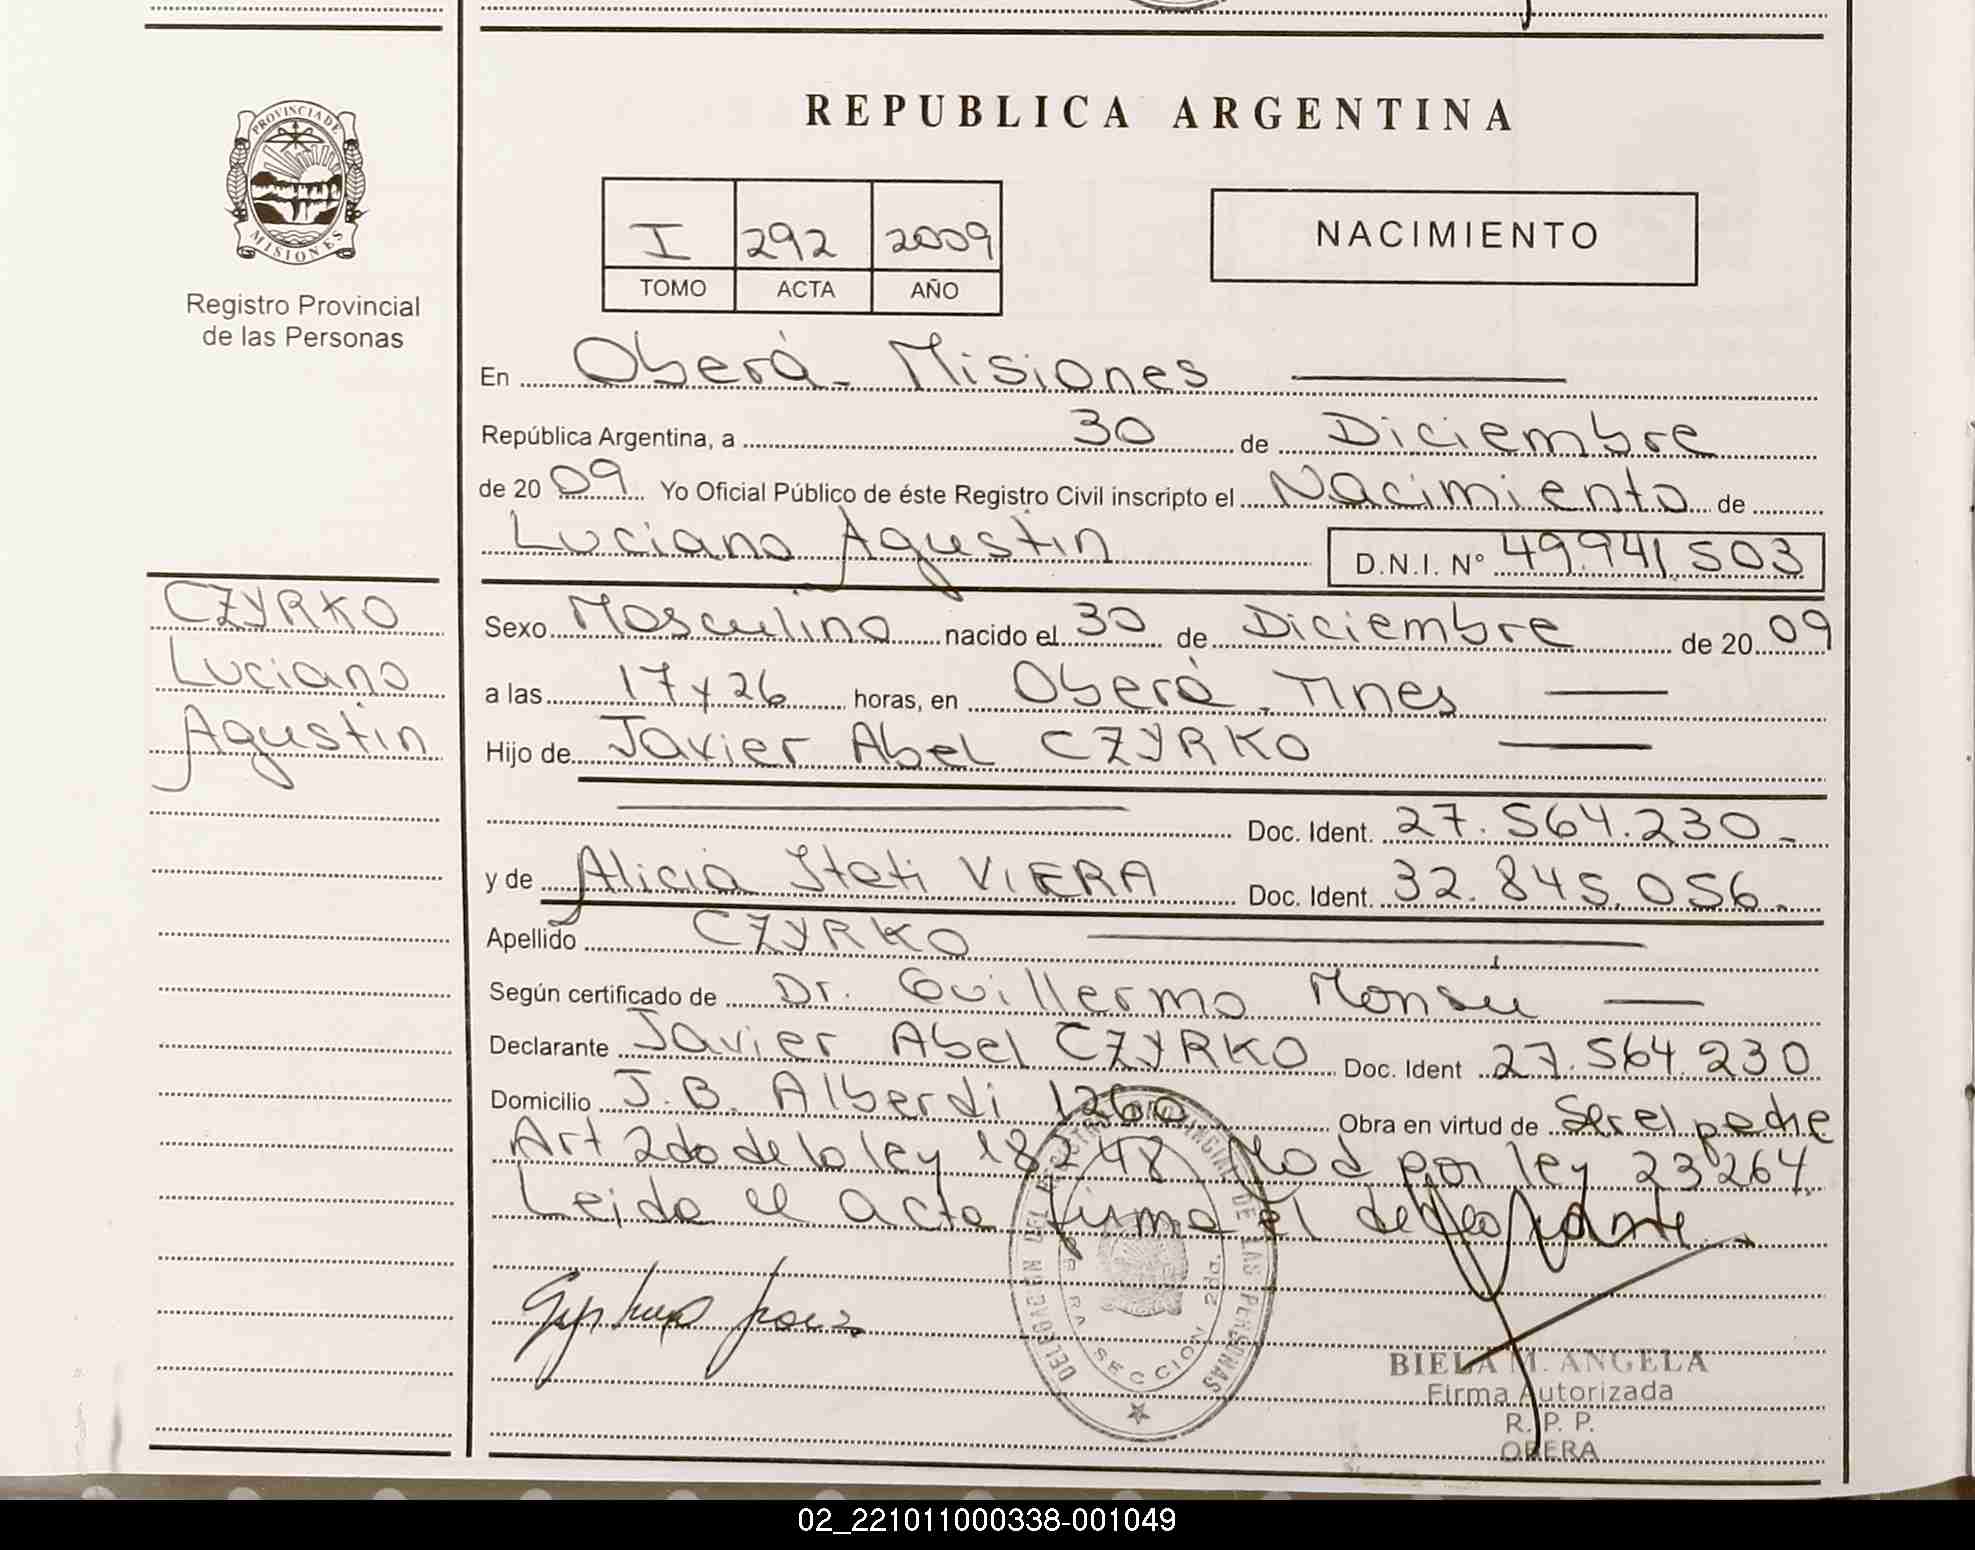 PROVINCIA DE
MISIONES
Registro Provincial
de las Personas
REPUBLICA ARGENTINA
I 292 2009
TOMO ACTA AÑO
NACIMIENTO
En Oberá - Misiones
República Argentina, a 30 de Diciembre
de 20 09 Yo Oficial Público de éste Registro Civil inscripto el Nacimiento de
Luciano Agustin D.N.I. Nº 49.941.503
CZYRKO
Luciano
Agustin
Sexo Masculino nacido el 30 de Diciembre de 20 09
a las 17 y 26 horas, en Oberá - Mnes
Hijo de Javier Abel CZYRKO
Doc. Ident. 27.564.230.-
y de Alicia Itati VIERA Doc. Ident. 32.845.056.-
Apellido CZYRKO
Según certificado de Dr. Guillermo Monsú
Declarante Javier Abel CZYRKO Doc. Ident 27.564.230
Domicilio J.B. Alberdi 1260 Obra en virtud de Ser el padre
Art 2do de la ley 18248 Mod por ley 23264.
Leida el acta firma el declarante
DELEGACION DEL REGISTRO PROVINCIAL DE LAS PERSONAS
SECCION 2da.
BIELA M. ANGELA
Firma Autorizada
R. P. P.
OBERA
02_221011000338-001049